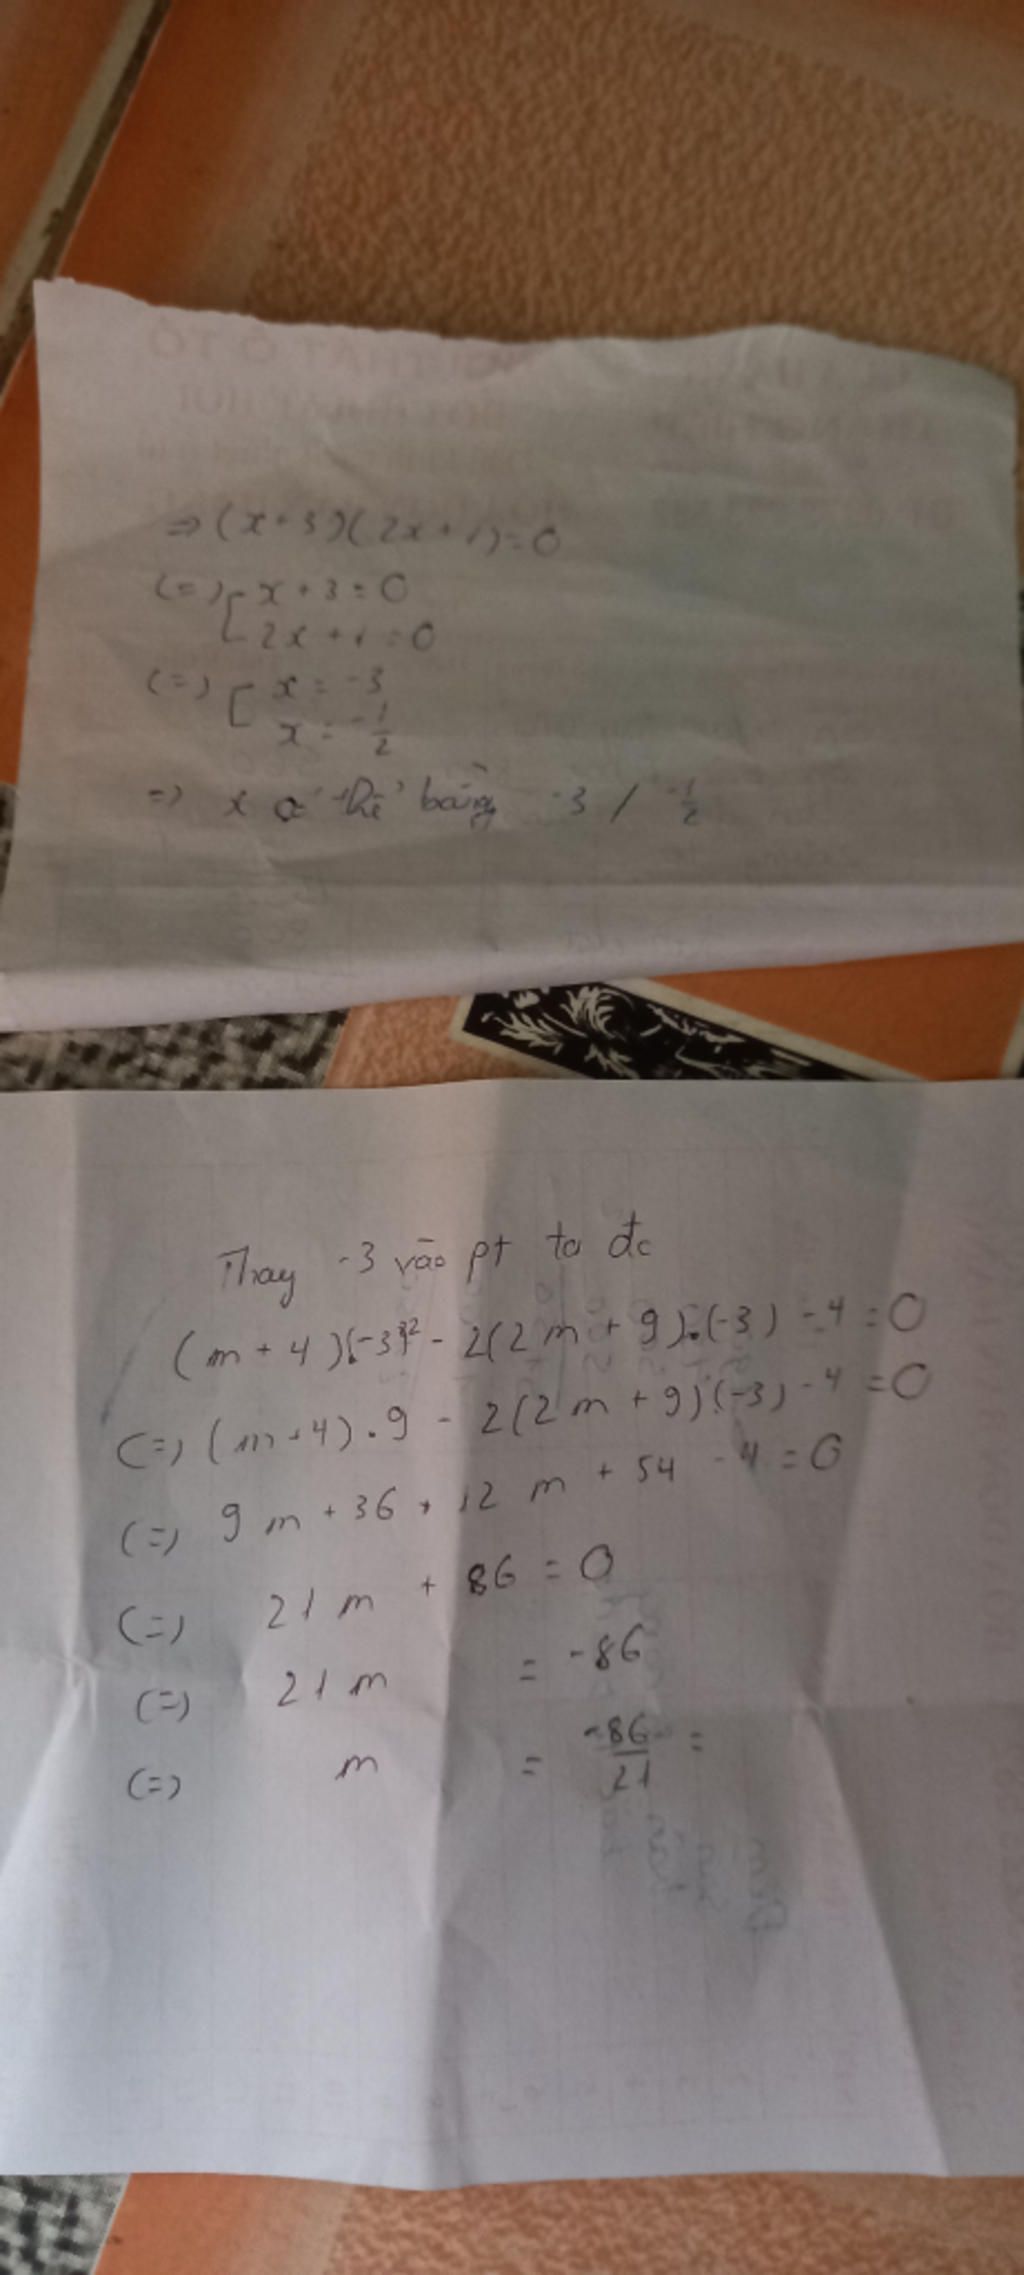 => (x+3)(2x+1)=0
(=) [ x+3=0
2x+1=0
(=) [ x = -3
x = -1/2
=) x có thể bằng -3 / -1/2
Thay -3 vào pt ta đc
(m+4).(-3)² - 2(2m+9).(-3) - 4 = 0
(=) (m+4).9 - 2(2m+9)(-3) - 4 = 0
(=) 9m + 36 + 12m + 54 - 4 = 0
(=) 21m + 86 = 0
(=) 21m = -86
(=) m = -86/21 =